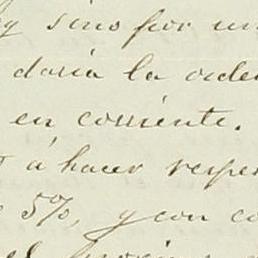 y sino por un
daria la orden
en corriente.
á hacer respe
5%, y con co